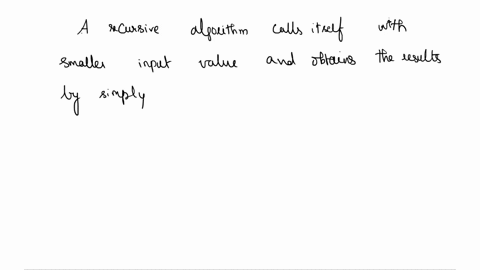 A recursive algorithm calls itself with
smaller input value and obtains the results
by simply